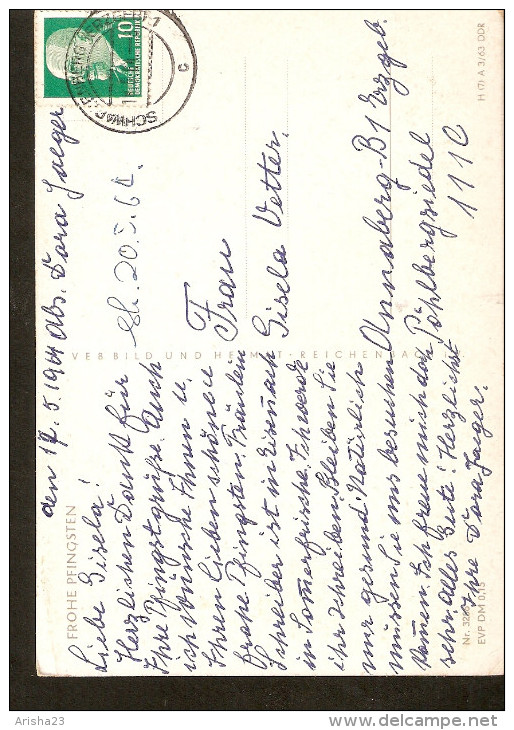 FROHE PFINGSTEN
den 17.5.1964 Abs. Dora Jaeger
Liebe Gisela!
Herzlichen Dank für
Ihre Pfingstgrüße. Auch
ich wünsche Ihnen u.
Ihren Lieben schönen
Frohe Pfingsten. Fräulein
Schreiber ist in Eisenach
in Somerfrische. Ich werde
ihr schreiben. Bleiben Sie
nur gesund. Natürlich
müssen Sie uns besuchen
komen. Ich freue mich doch
sehr. Alles Gute! Herzlichst
Ihre Dora Jaeger.
20.5.64.
Frau
Gisela Vetter.
Annaberg-B 1 Erzgeb.
Pöhlbergsiedel
111 C
VEB BILD UND HEIMAT · REICHENBACH i. V.
EVP DM 0,15
H (7) A 3/63 DDR
10
DEUTSCHE
DEMOKRATISCHE REPUBLIK
SCHWARZENBERG (ERZGEB) 1
c
Arisha23
www.delcampe.net